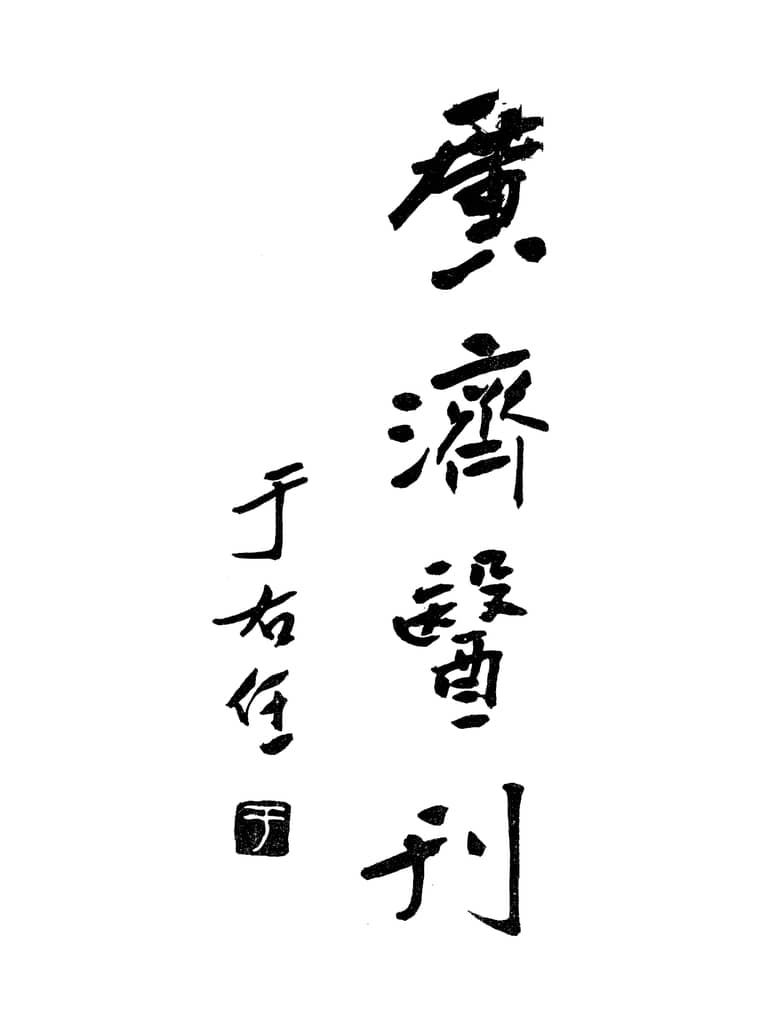 廣濟醫刊
于右任
于